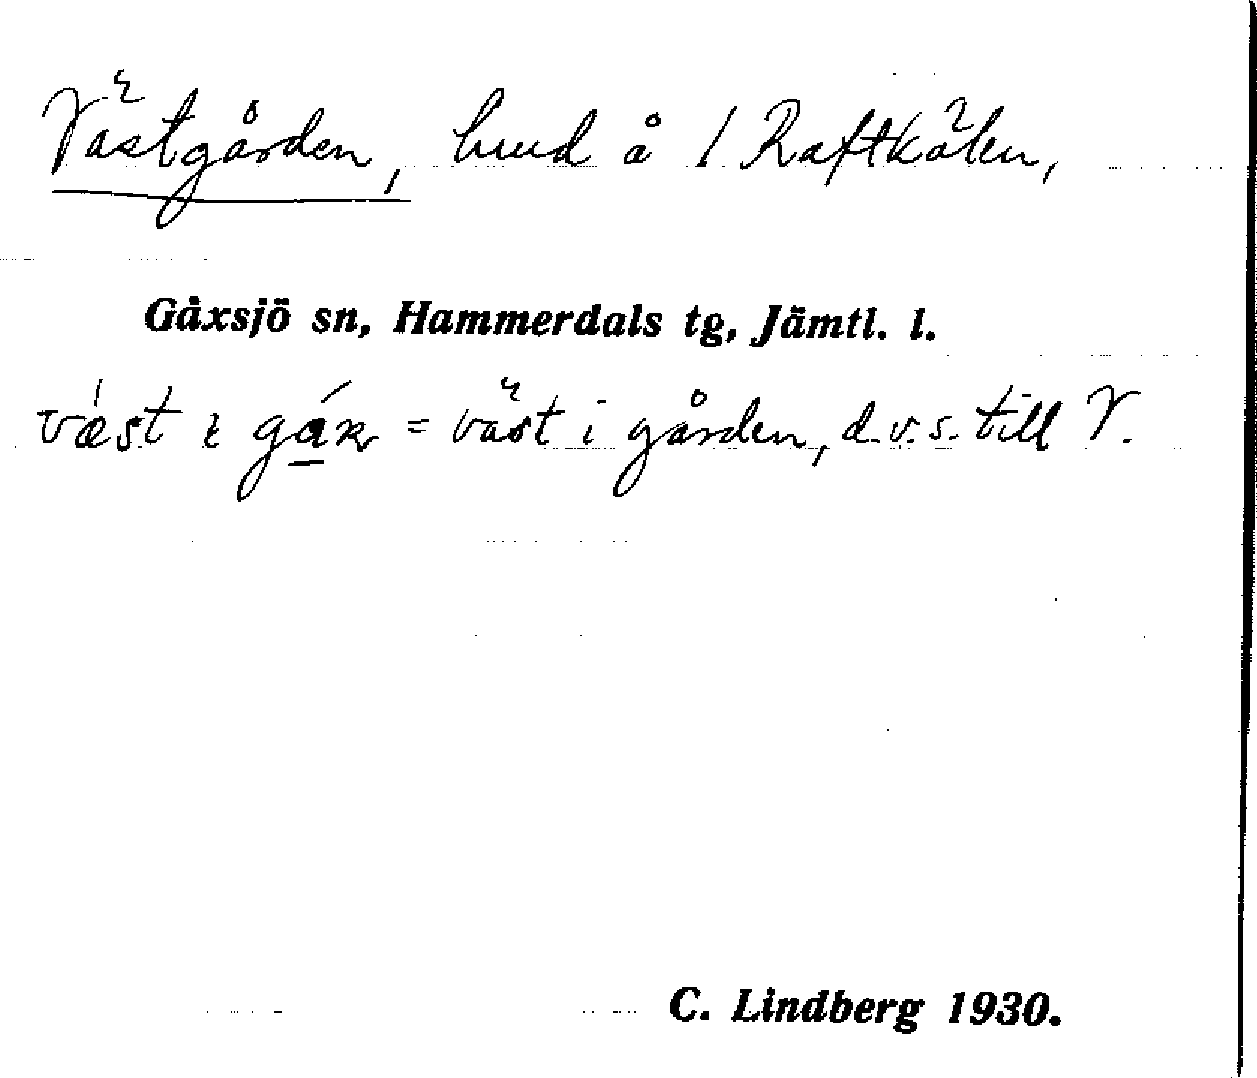 Västgården, hmd å 1 Raftkälen,
Gåxsjö sn, Hammerdals tg, Jämtl. l.
væst i = väst i gården, d.v.s. till V.
C. Lindberg 1930.